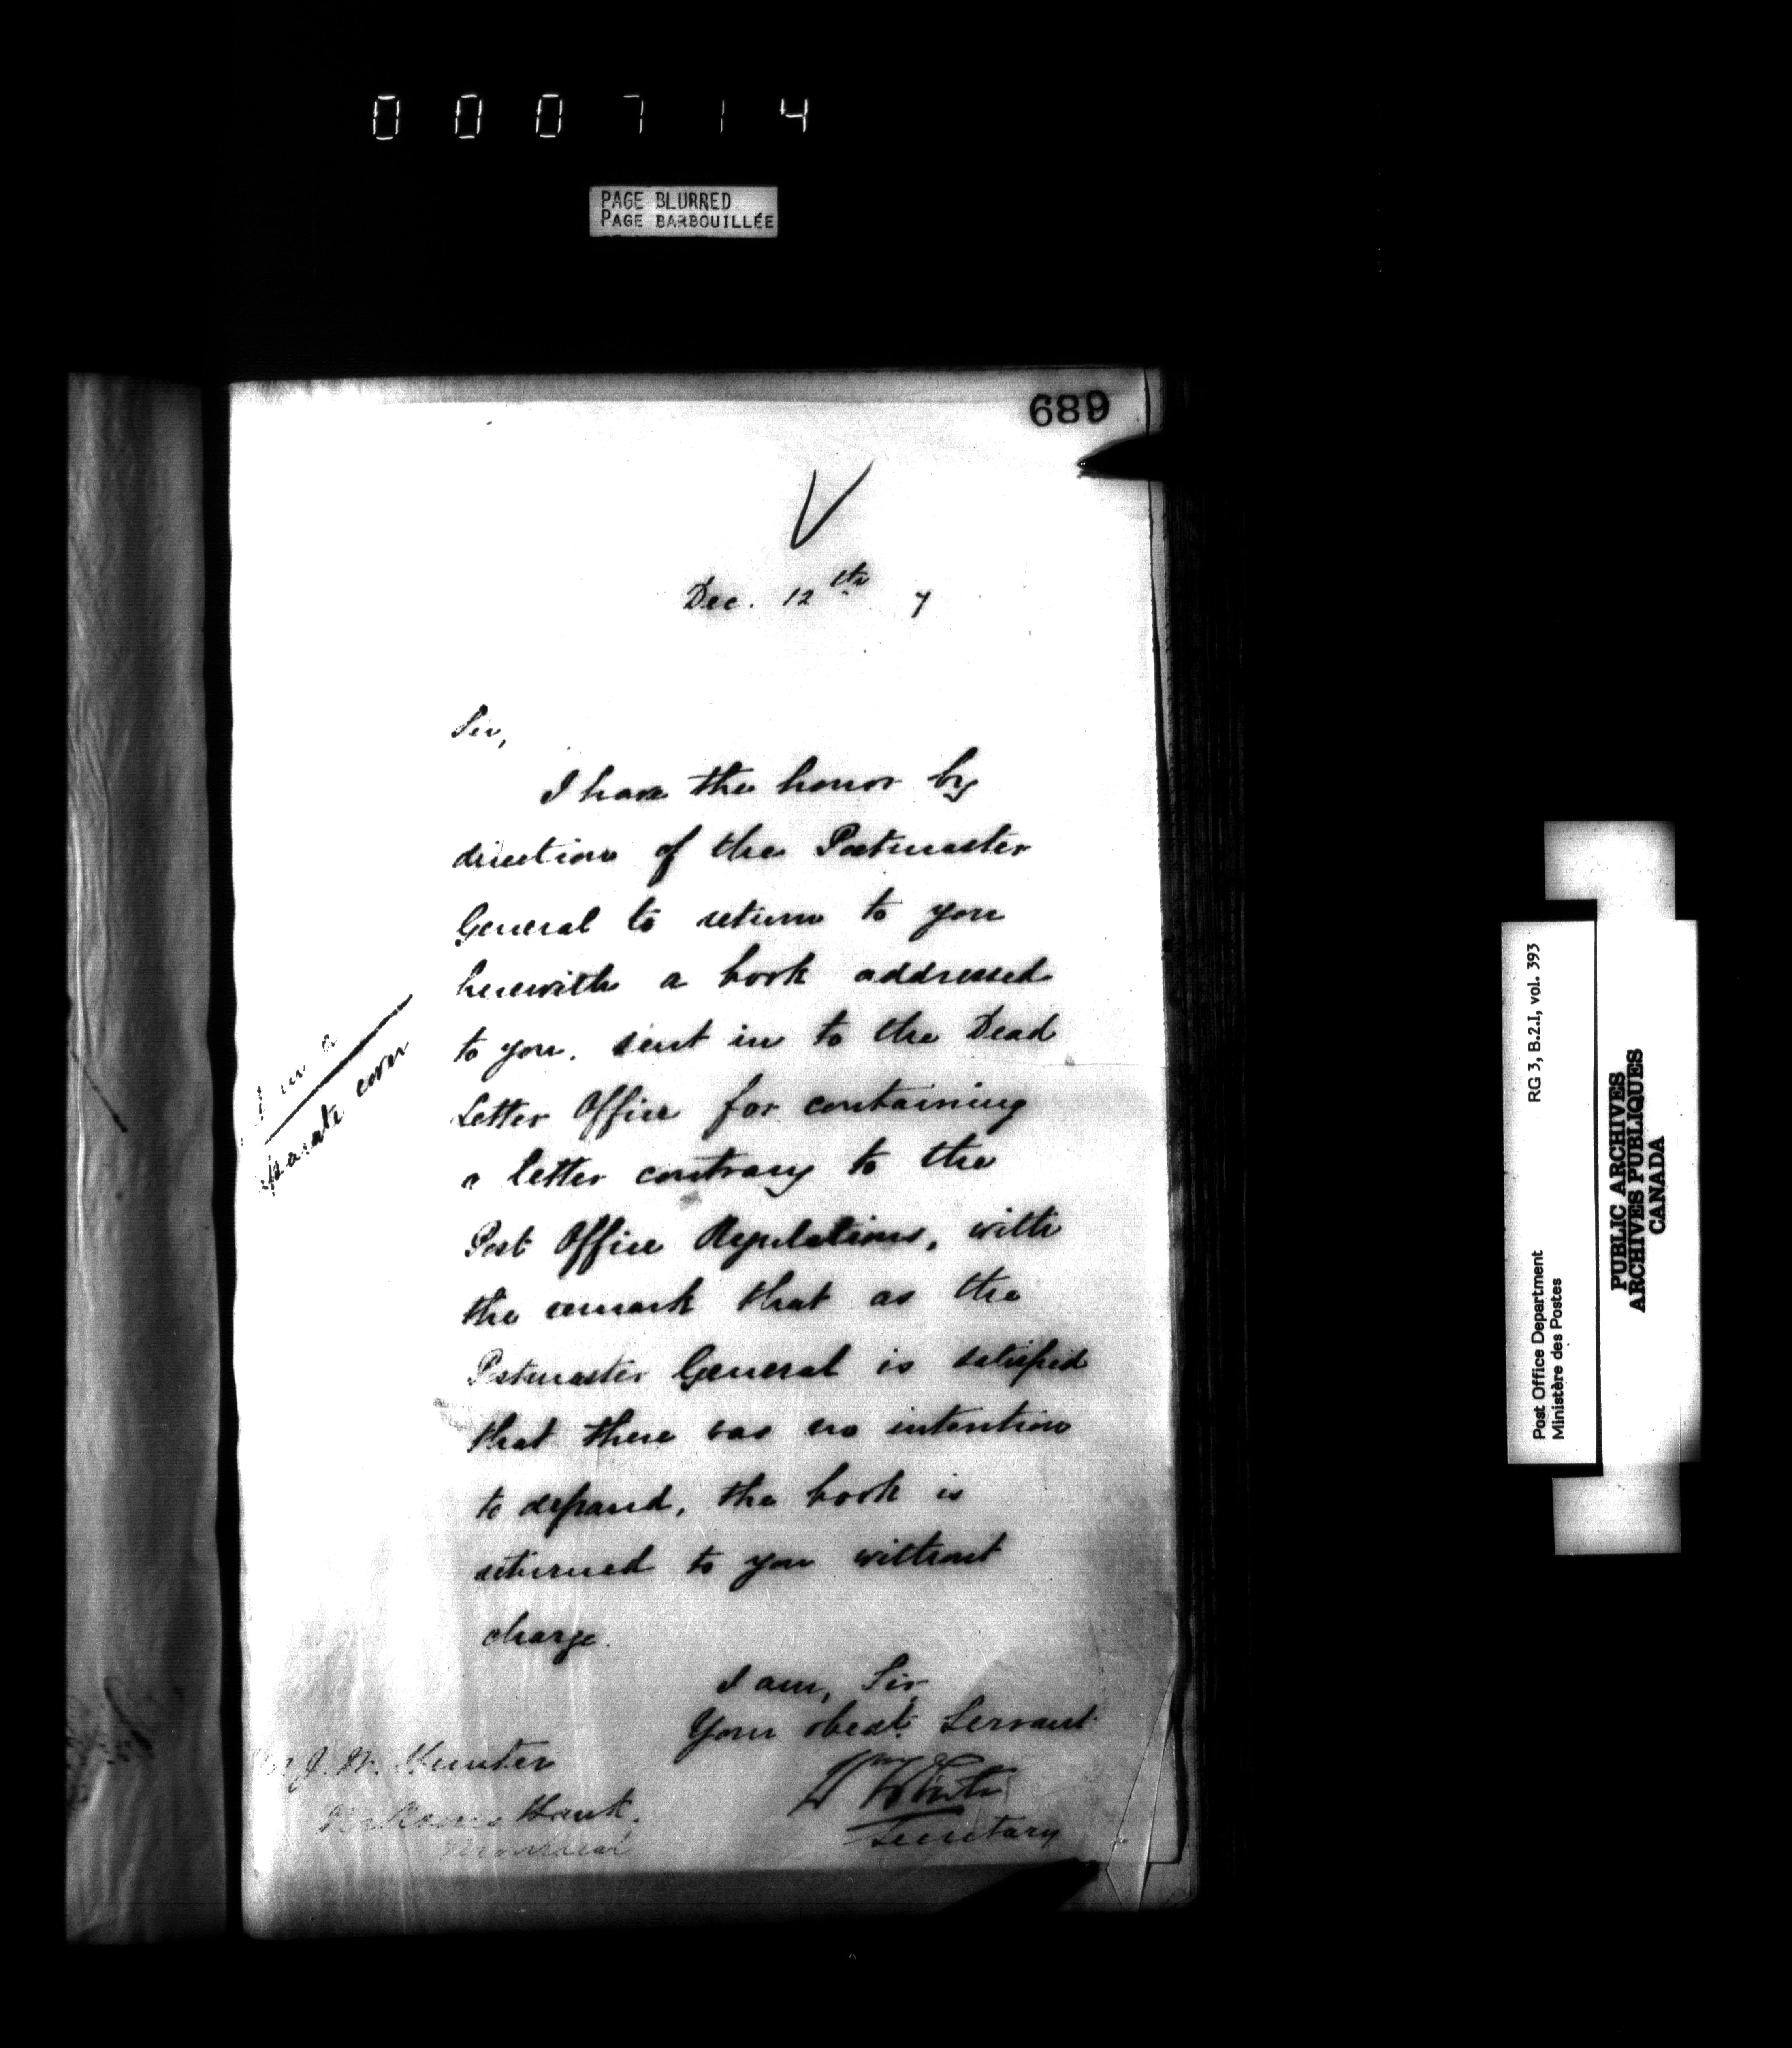 000714
PAGE BLURRED
PAGE BARBOUILLÉE
689
Dec. 12th 7
Sir,
I have the honor by
direction of the Postmaster
General to return to you
herewith a book addressed
to you, sent in to the Dead
Letter Office for containing
a letter contrary to the
Post Office Regulations, with
the remark that as the
Postmaster General is satisfied
that there was no intention
to defraud, the book is
returned to you without
charge.
I am, Sir,
Your obedt. Servant
Wm White
Secretary
J. W. Hunter
Bank,
Montreal
in a
separate cover
RG 3, B.2.I, vol. 393
Post Office Department
Ministère des Postes
PUBLIC ARCHIVES
ARCHIVES PUBLIQUES
CANADA